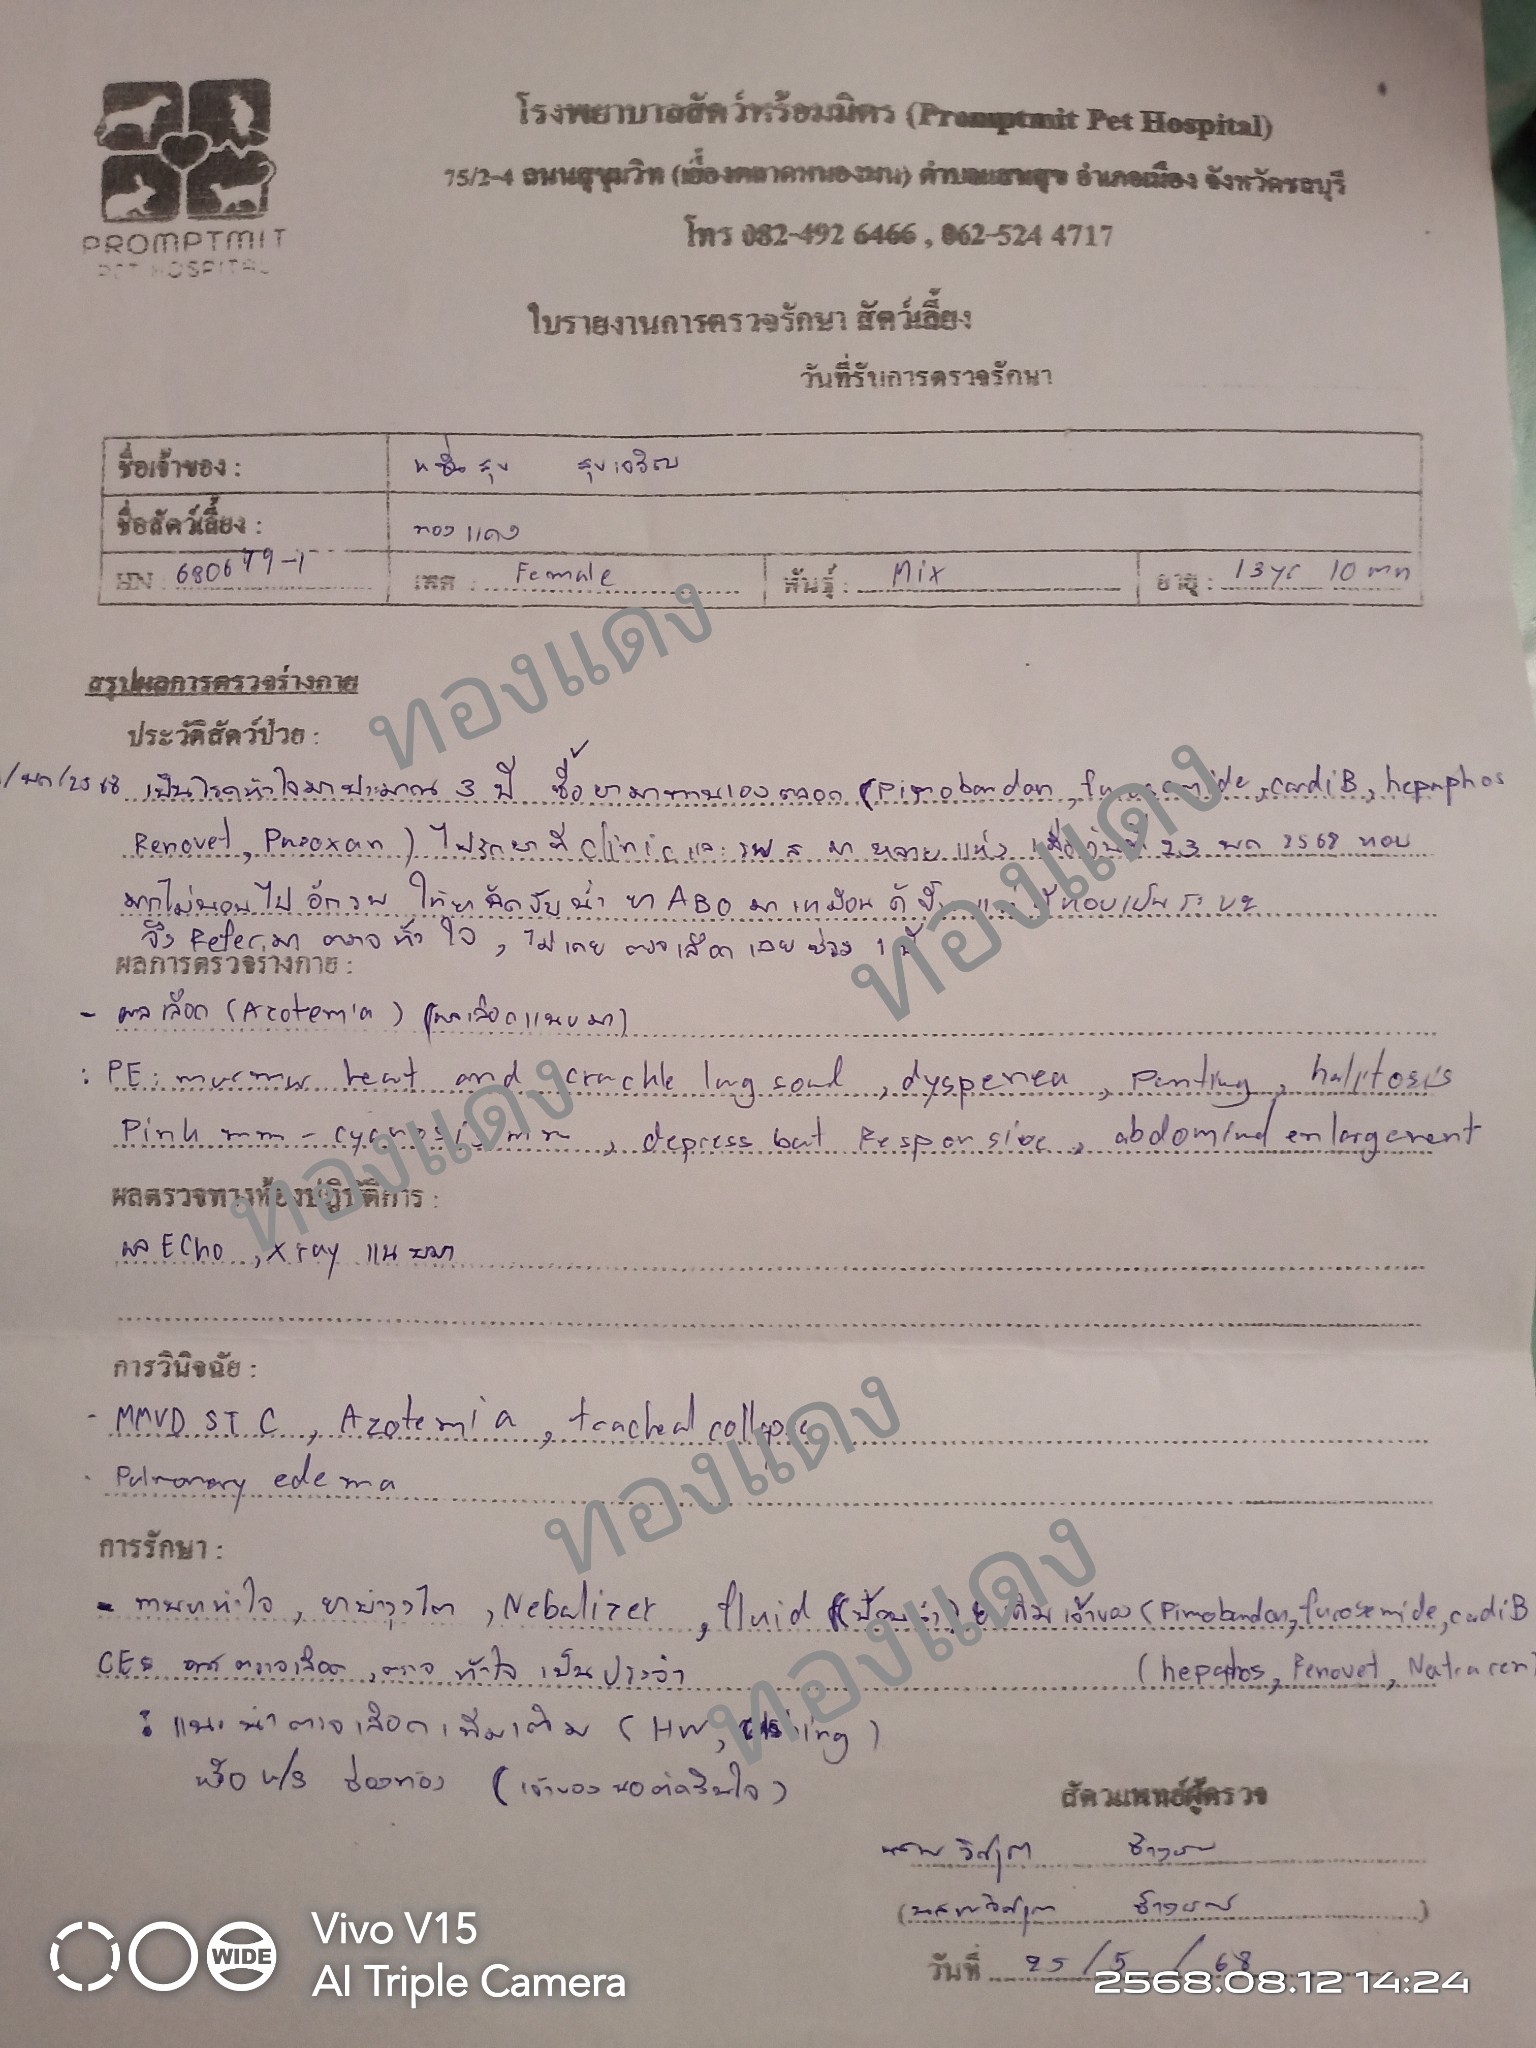 โรงพยาบาลสัตว์พร้อมมิตร (Promptmit Pet Hospital)
75/2-4 ถนนสุขุมวิท (เยื้องตลาดหนองมน) ตำบลแสนสุข อำเภอเมือง จังหวัดชลบุรี
โทร 082-492 6466 , 062-524 4717
PROMPTMIT
PET HOSPITAL
ใบรายงานการตรวจรักษา สัตว์เลี้ยง
วันที่รับการตรวจรักษา
ชื่อเจ้าของ :
ชื่อสัตว์เลี้ยง : ทองแดง
HN : 680679-1 เพศ : Female พันธุ์ : Mix อายุ : 13yr 10 mn
สรุปผลการตรวจร่างกาย
ประวัติสัตว์ป่วย :
/พค/2568 เป็นโรคหัวใจมาประมาณ 3 ปี ซื้อยามาทานเองตลอด (Pimobendan, furosemide, cardiB, hepaphos
Renovet, ) ไปรักษาที่ clinic และ รพส มาหลายแห่ง เมื่อวันที่ 23 พค 2568 หอบ
มากไม่นอน ให้ยาฉีดขับน้ำ ยา ABO มาเหมือนดีขึ้น แต่ หอบเป็นระยะ
จึง Refer มา ตรวจหัวใจ , ไม่เคย ตรวจเลือด เลย ช่วง 1 ปี
ผลการตรวจร่างกาย :
- ผลเลือด (Azotemia) (ผลเลือดแนบมา)
: PE : murmur heart and crackle lung sound , dyspenea , Panting , halitosis
Pink mm - cyanosis mm , depress but Responsive , abdominal enlargement
ผลตรวจทางห้องปฏิบัติการ :
ผล ECho , xray แนบมา
การวินิจฉัย :
- MMVD ST C , Azotemia , tracheal collapse
- Pulmonary edema
การรักษา :
- ยาบำรุงไต , Nebulizer , fluid (ป้อนน้ำ) เดิมเจ้าของ (Pimobendan, furosemide, cardiB
ตรวจเลือด , ตรวจ หัวใจ เป็นประจำ (hepaphos, Renovet,
: แนะนำตรวจเลือดเพิ่มเติม ( HW, )
หรือ u/s ช่องท้อง (เจ้าของขอตัดสินใจ)
สัตวแพทย์ผู้ตรวจ
วันที่ 25 / 5 / 68
ทองแดง
ทองแดง
ทองแดง
ทองแดง
ทองแดง
WIDE
Vivo V15
AI Triple Camera
2568.08.12 14:24